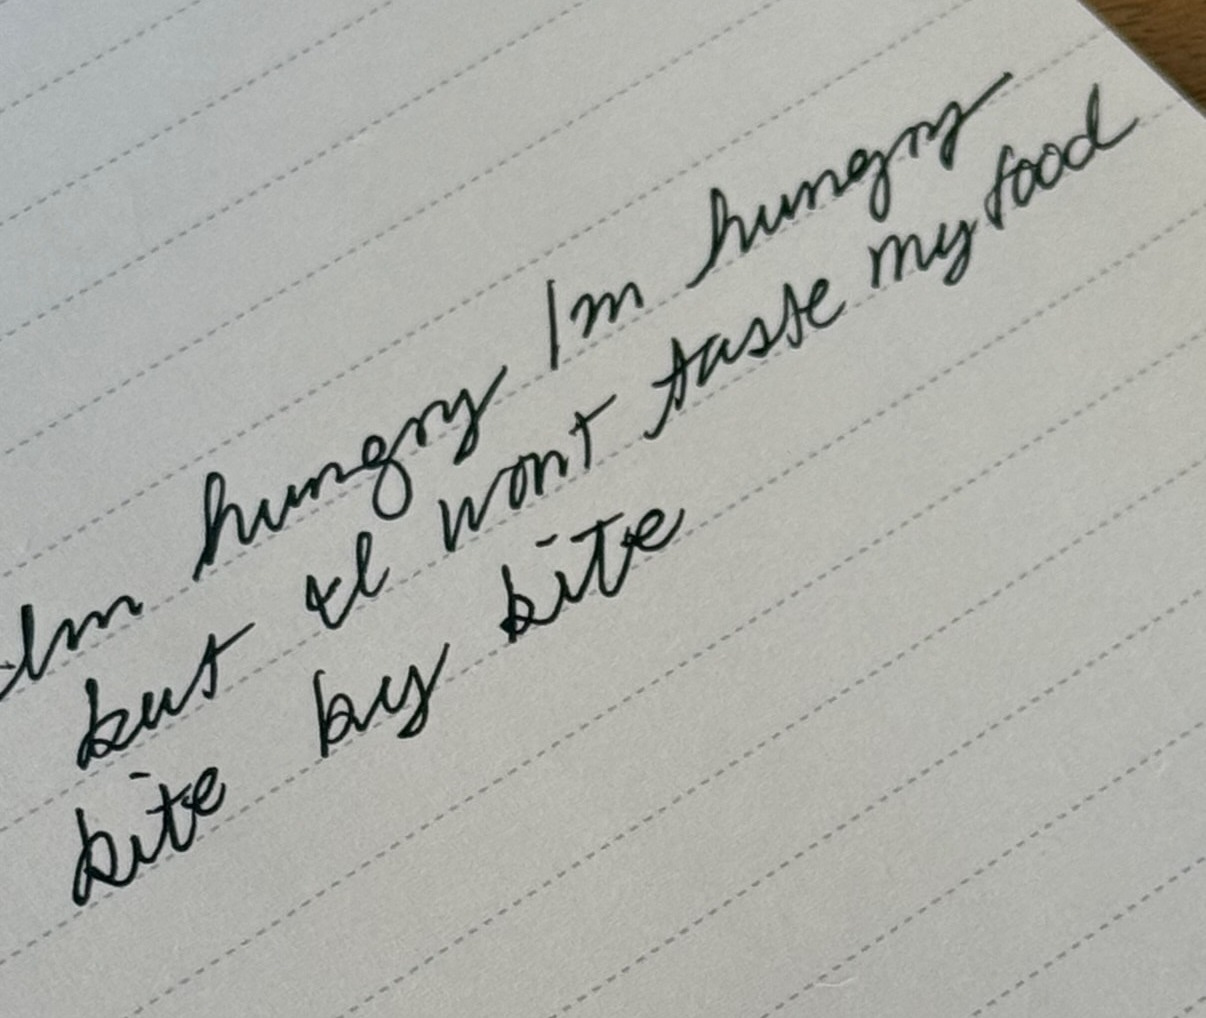 Im hungry Im hungry
but I wont taste my food
bite by bite